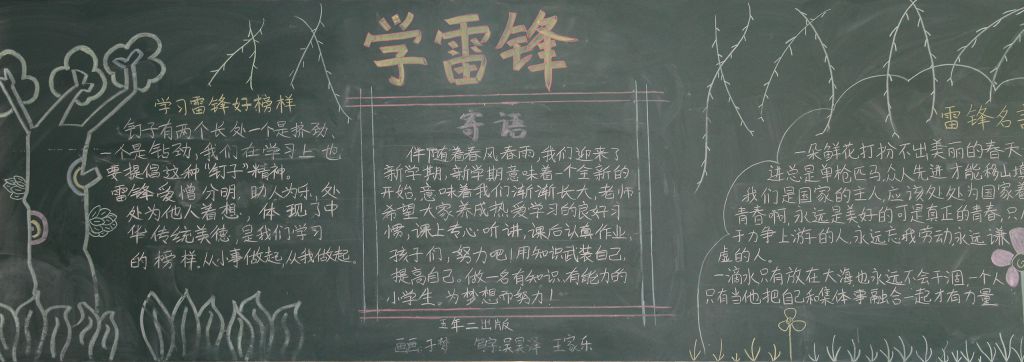 学雷锋
学习雷锋好榜样
钉子有两个长处一个是挤劲、
一个是钻劲,我们在学习上也
要提倡这种“钉子”精神。
雷锋爱憎分明,助人为乐,处
处为他人着想,体现了中
华传统美德,是我们学习
的榜样.从小事做起,从我做起。
寄语
伴随着春风春雨,我们迎来了
新学期,新学期意味着一个全新的
开始,意味着我们渐渐长大,老师
希望大家养成热爱学习的良好习
惯,课上专心听讲,课后认真作业。
孩子们,努力吧!用知识武装自己,
提高自己。做一名有知识,有能力的
小学生。为梦想而努力!
五年二出版
雷锋名言
一朵鲜花打扮不出美丽的春天
进总是单枪匹马,众人先进才能移山填
我们是国家的主人,应该处处为国家着
青春啊,永远是美好的可是真正的青春,只
于力争上游的人,永远忘我劳动永远谦
虚的人。
一滴水只有放在大海也永远不会干涸,一个人
只有当他把自己和集体事融合一起才有力量